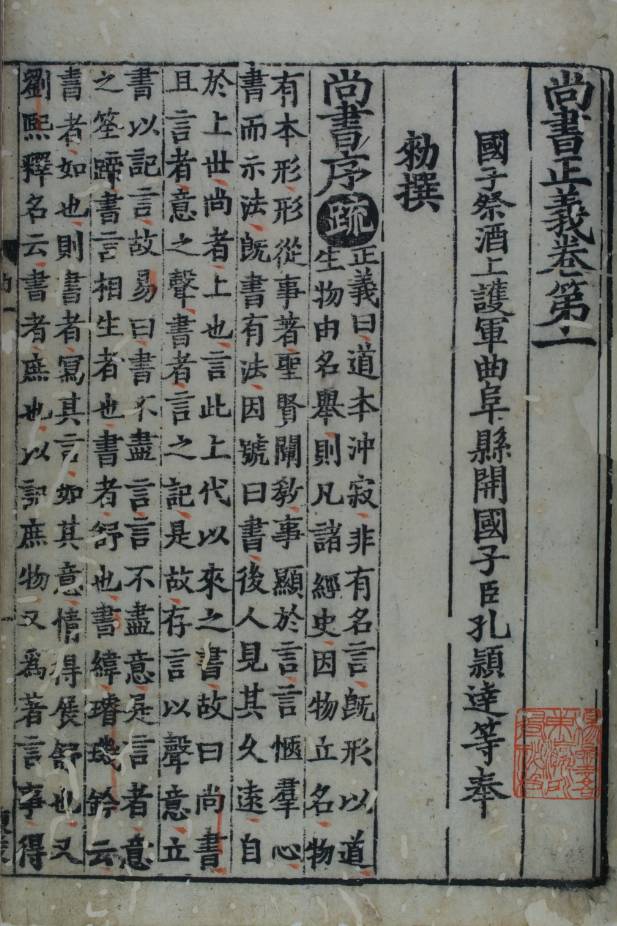 尚書正義卷第一
國子祭酒上護軍曲阜縣開國子臣孔穎達等奉
勑撰
尚書序 疏 正義曰道本沖寂非有名言旣形以道
生物由名舉則凡諸經史因物立名物
有本形形從事著聖賢闡敎事顯於言言愜羣心
書而示法旣書有法因號曰書後人見其久遠自
於上世尚者上也言此上代以來之書故曰尚書
且言者意之聲書者言之記是故存言以聲意立
書以記言故易曰書不盡言言不盡意是言者意
之筌蹄書言相生者也書者舒也書緯璿璣鈐云
書者如也則書者寫其言如其意情得展舒也又
劉熙釋名云書者庶也以記庶物又爲著言事得